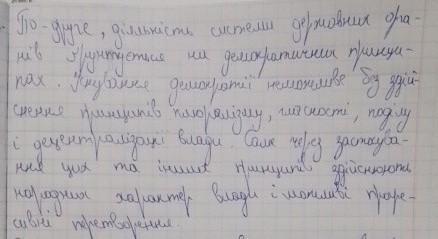 По-друге, діяльність системи державних орга-
нів ґрунтується на демократичних принци-
пах. Існування демократії неможливе без здій-
снення принципів плюралізму, гласності, поділу
і децентралізації влади. Саме через застосува-
ння цих та інших принципів здійснюють
народний характер влади і можливі прогре-
сивні перетворення.